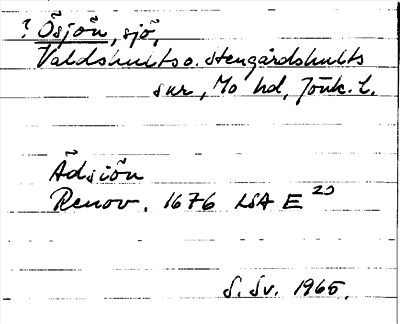 ? Ösjön, sjö,
Valdshults o. Stengårdshults
snr, Mo hd, Jönk. l.
Ädsiön
Renov. 1676 LSA E 20
S. Sv. 1965.